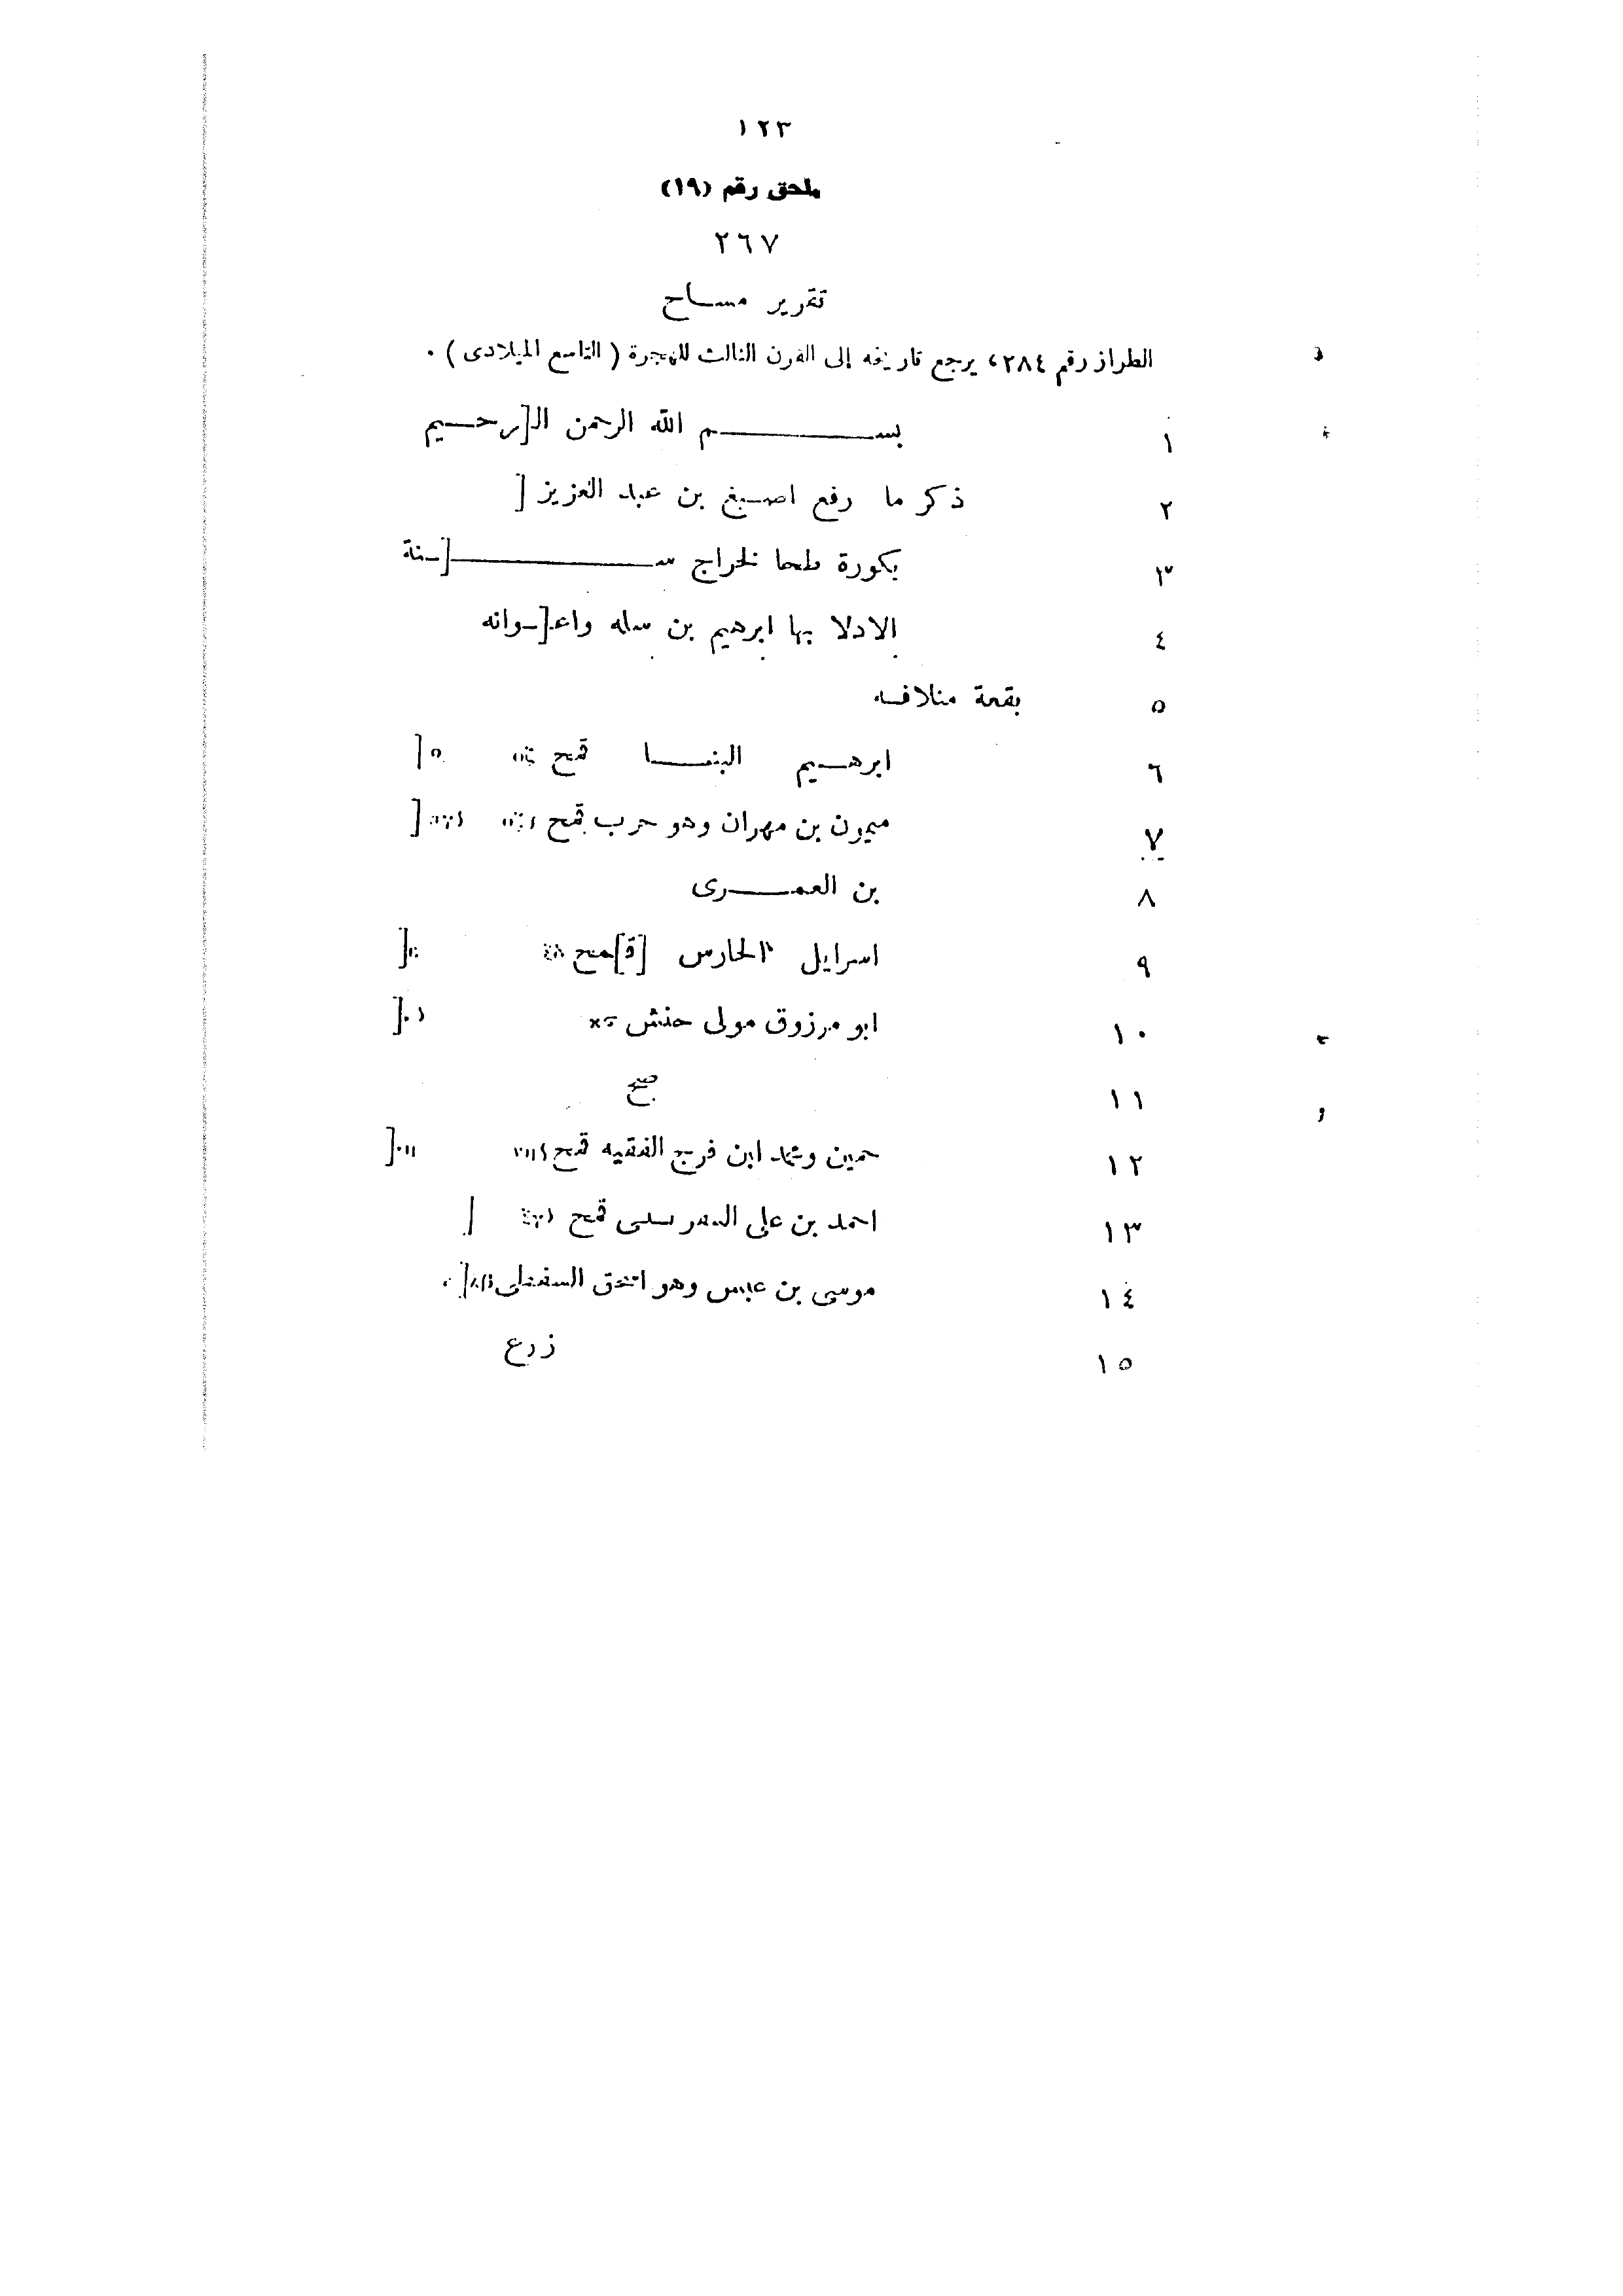 ١٢٣
ملحق رقم (١٩)
٢٦٧
تقرير مساح
الطراز رقم ٢٨٤، يرجع تاريخه إلى القرن الثالث للهجرة (التاسع الميلادى).
١ بسم الله الرحمن الـ[ـرحيم
٢ ذكر ما رفع اصبغ بن عبد العزيز [
٣ بكورة طحا لخراج سـ[ـنة
٤ الادلا بها ابرهيم بن سله واعـ[ـوانه
٥ بقعة
٦ ابرهيم البنا قمح
٧ ميمون بن مهران وهو حرب قمح
٨ بن العمرى
٩ اسرايل الحارس [ق]ـمح
١٠ ابو مرزوق مولى حنش
١١ صح
١٢ ومحمد ابن فرج الفقيه قمح
١٣ احمد بن على قمح
١٤ موسى بن عبس وهو
١٥ زرع